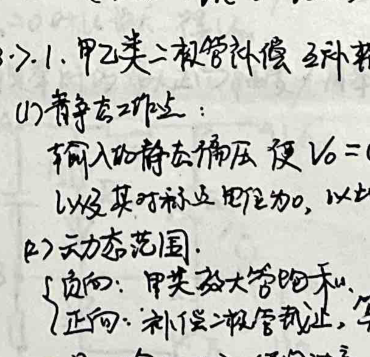 3.7.1. 甲乙类二极管补偿 互补
(1) 静态工作点：
输入的静态偏压 使 V₀ =
以及其对称点 电位为0, 以
(2) 动态范围.
负向: 甲类放大管饱和,
正向: 补偿二极管截止,